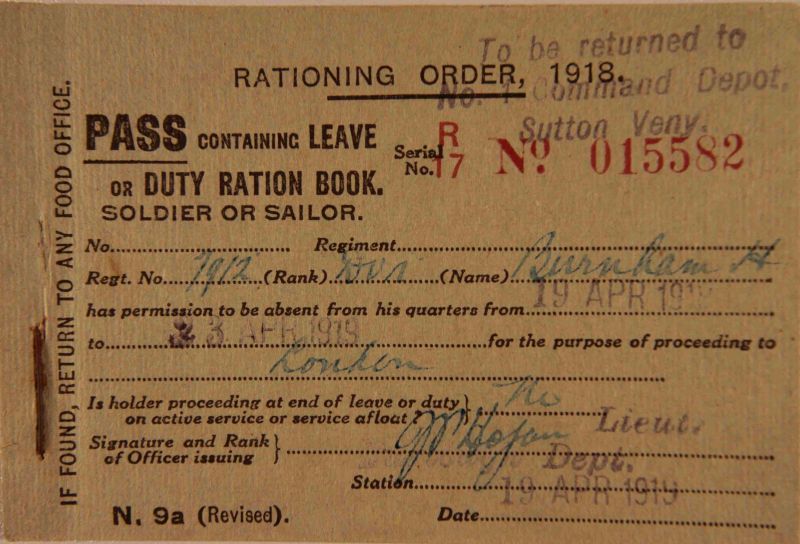 To be returned to
No. 1 Command Depot,
Sutton Veny.
RATIONING ORDER, 1918.
PASS CONTAINING LEAVE
OR DUTY RATION BOOK.
SOLDIER OR SAILOR.
Serial No. R 17 No. 015582
No. Regiment
Regt. No. 1912 (Rank) DVR (Name) Burnham H
has permission to be absent from his quarters from 19 APR 1919
to 23 APR 1919 for the purpose of proceeding to
London
Is holder proceeding at end of leave or duty
on active service or service afloat?
Signature and Rank
of Officer issuing Lieut.
Dept.
Station 19 APR 1919
N. 9a (Revised). Date
IF FOUND, RETURN TO ANY FOOD OFFICE.